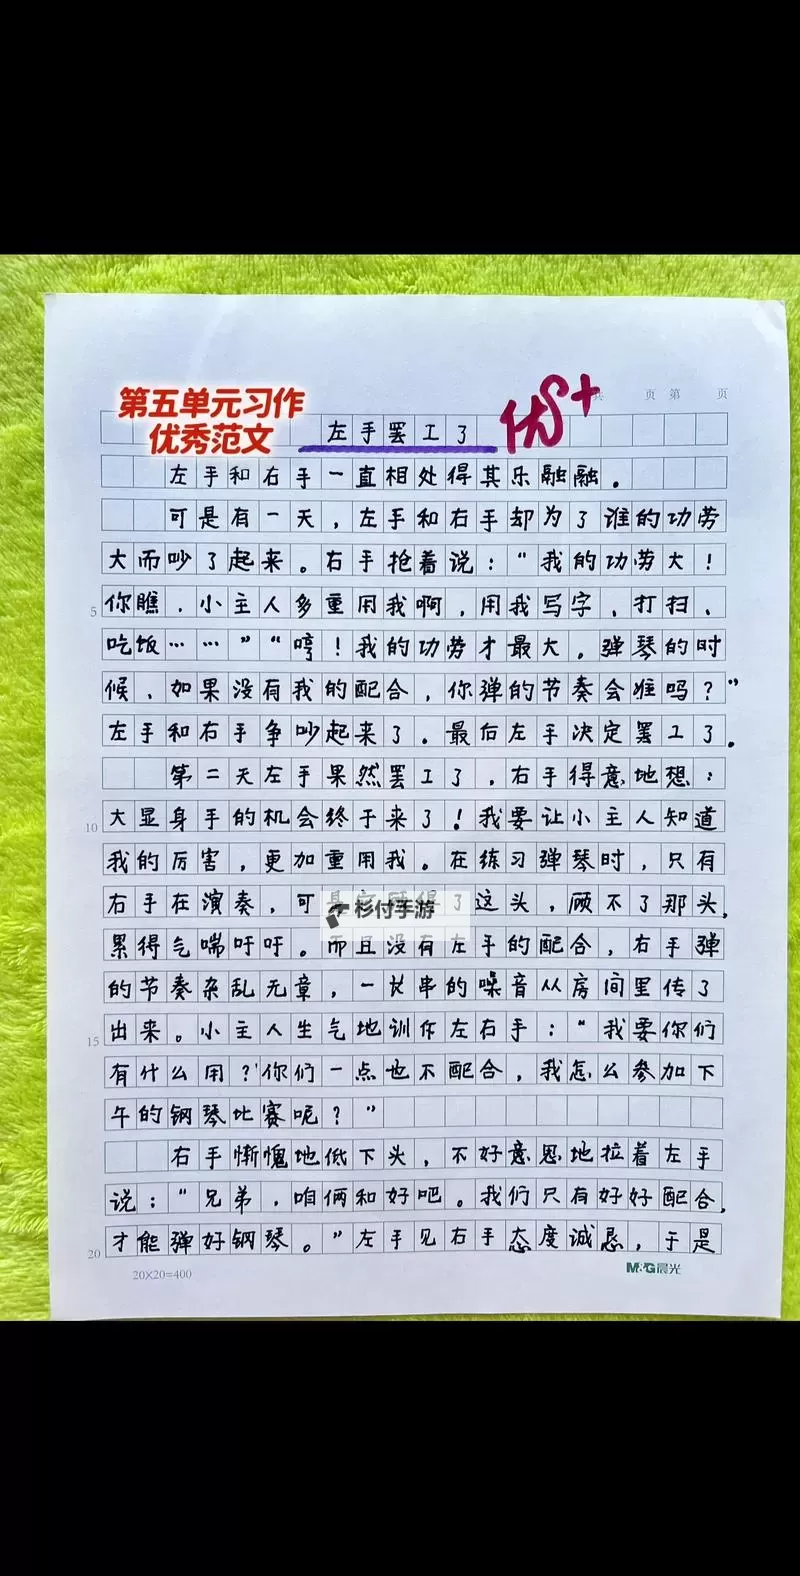 共 页 第 页
第五单元习作
优秀范文
左手罢工了
优S+
左手和右手一直相处得其乐融融。
可是有一天，左手和右手却为了谁的功劳
大而吵了起来。右手抢着说：“我的功劳大！
5
你瞧，小主人多重用我啊，用我写字、打扫、
吃饭……”“哼！我的功劳才最大，弹琴的时
候，如果没有我的配合，你弹的节奏会准吗？”
左手和右手争吵起来了。最后左手决定罢工了。
第二天左手果然罢工了，右手得意地想：
10
大显身手的机会终于来了！我要让小主人知道
我的厉害，更加重用我。在练习弹琴时，只有
右手在演奏，可 了这头，顾不了那头，
杉付手游
累得气喘吁吁。而且没有左手的配合，右手弹
的节奏杂乱无章，一长串的噪音从房间里传了
15
出来。小主人生气地训斥左右手：“我要你们
有什么用？你们一点也不配合，我怎么参加下
午的钢琴比赛呢？”
右手惭愧地低下头，不好意思地拉着左手
说：“兄弟，咱俩和好吧。我们只有好好配合，
20
才能弹好钢琴。”左手见右手态度诚恳，于是
20×20=400
M&G晨光